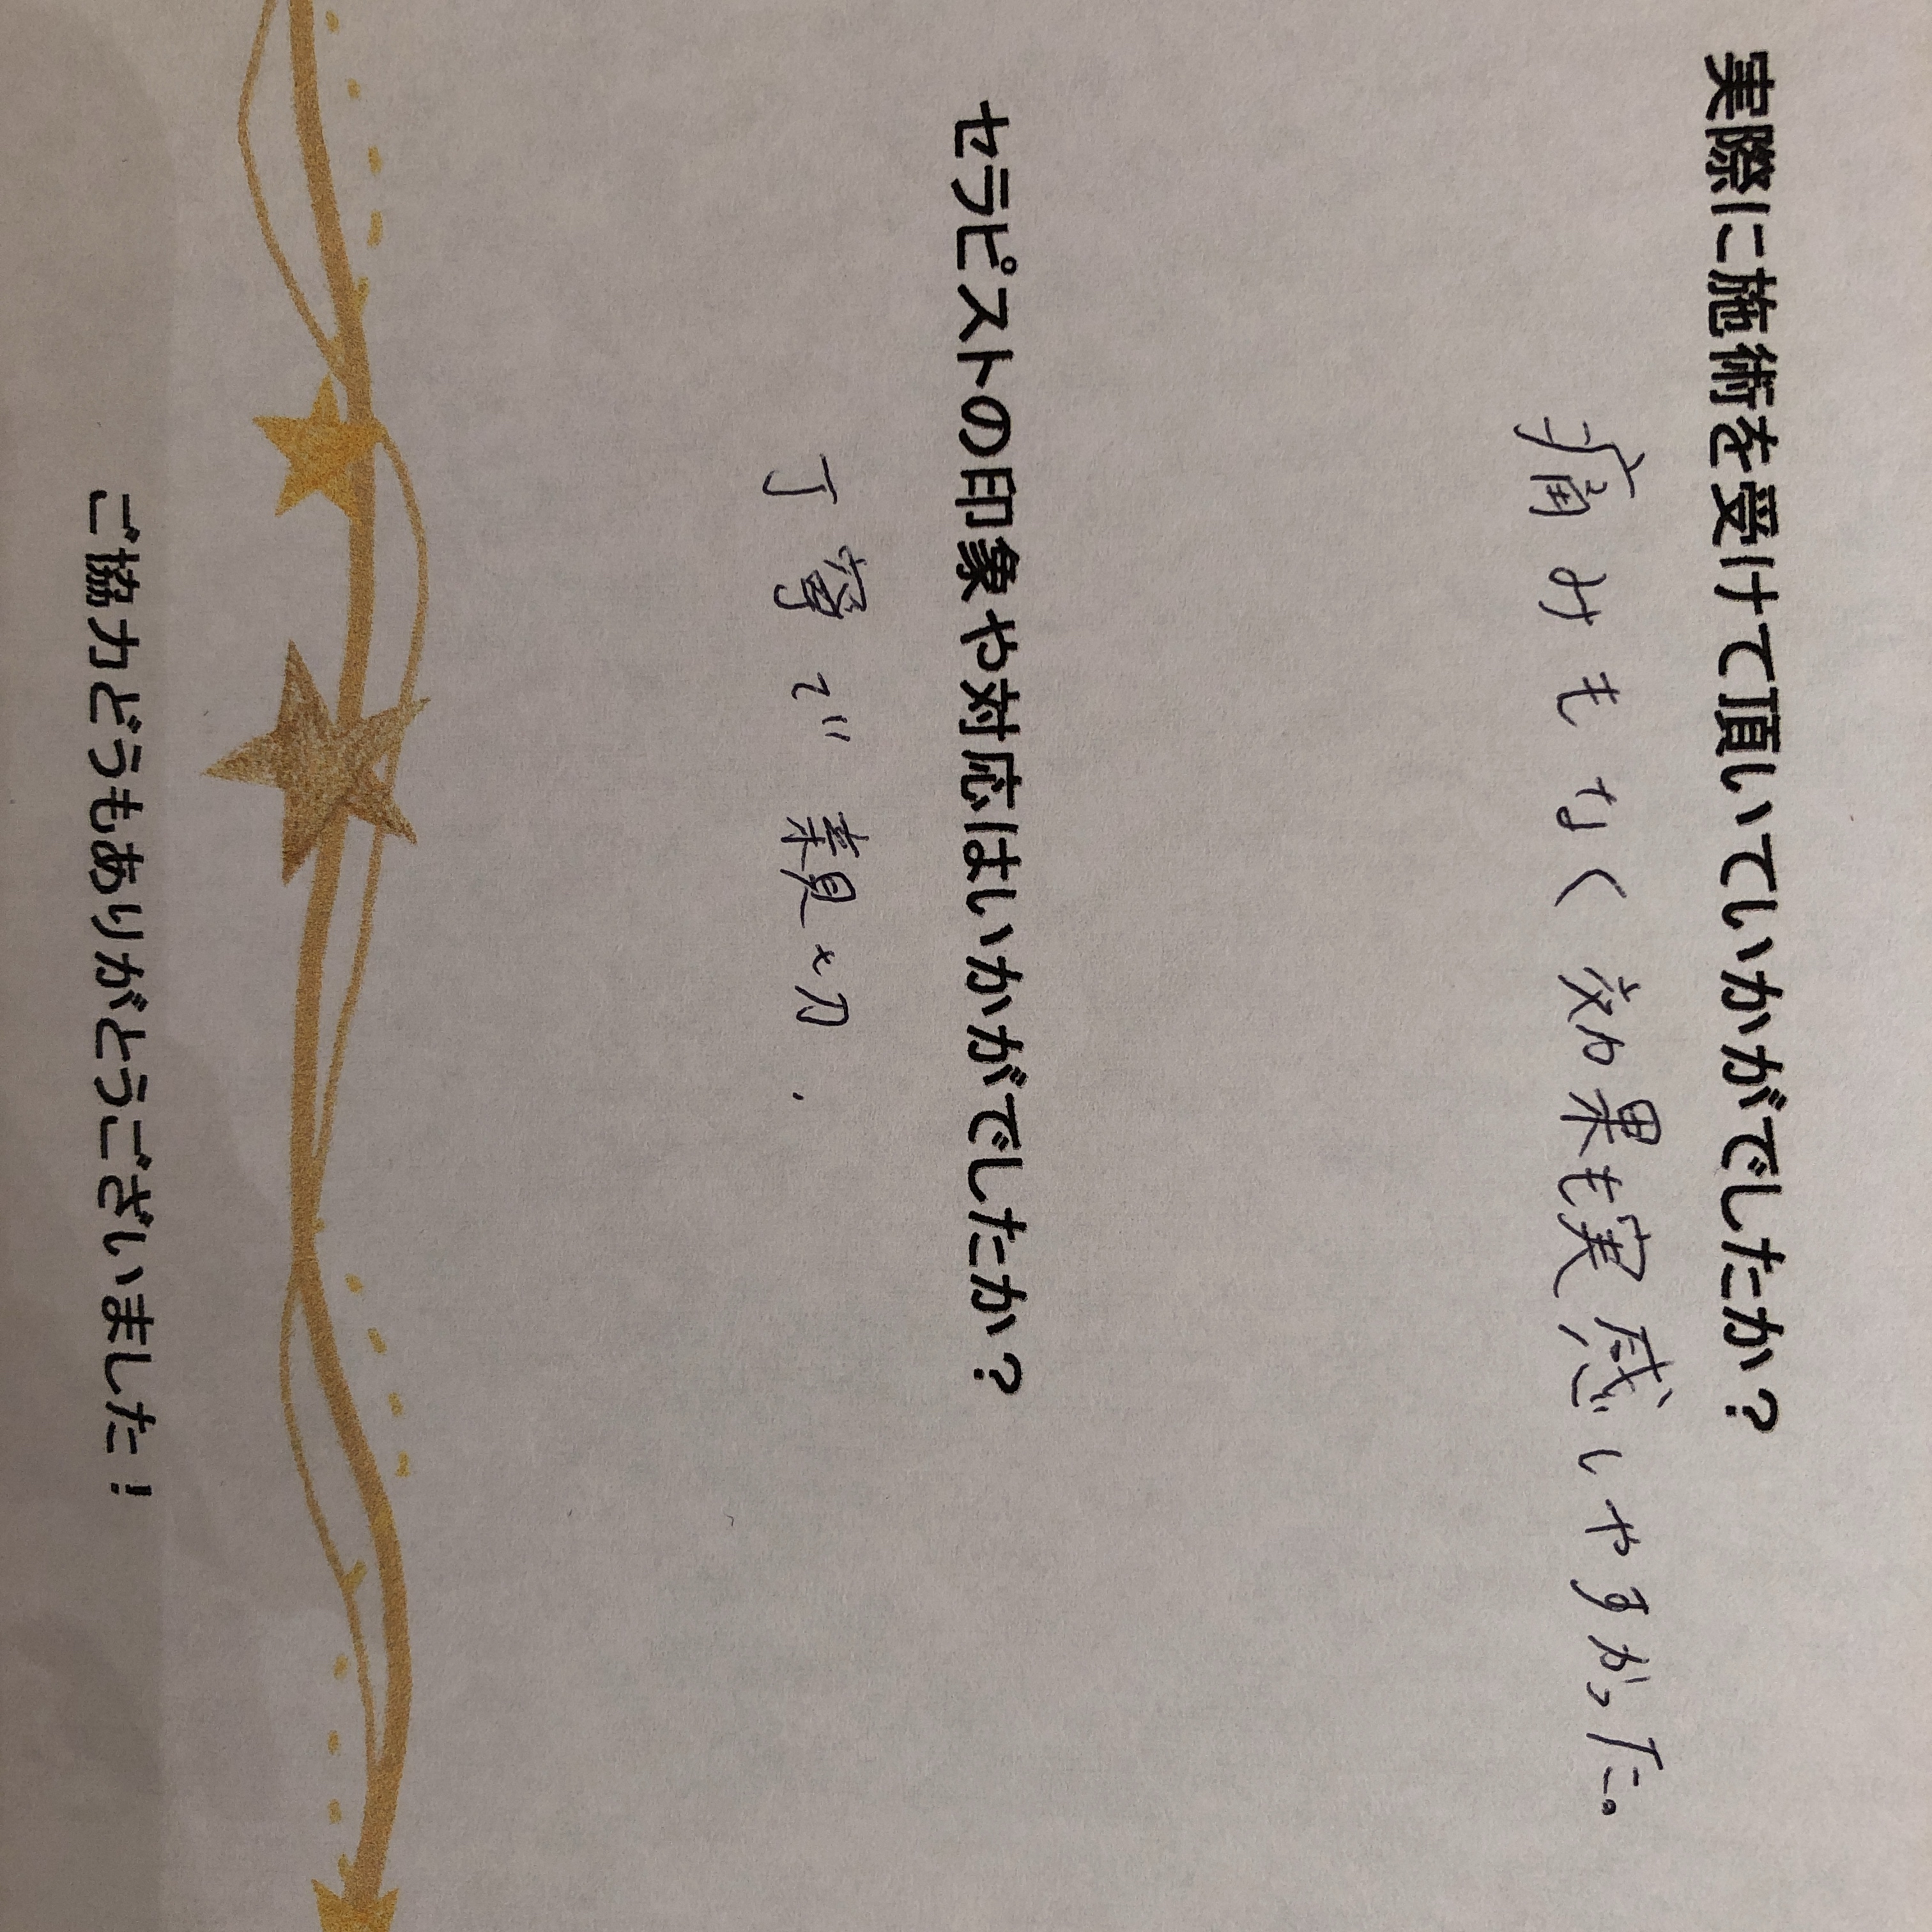 実際に施術を受けて頂いていかがでしたか？
痛みもなく効果も実感しやすかった。
セラピストの印象や対応はいかがでしたか？
丁寧で親切.
ご協力どうもありがとうございました！